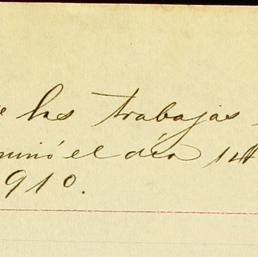 los trabajos
minó el día 14
910.